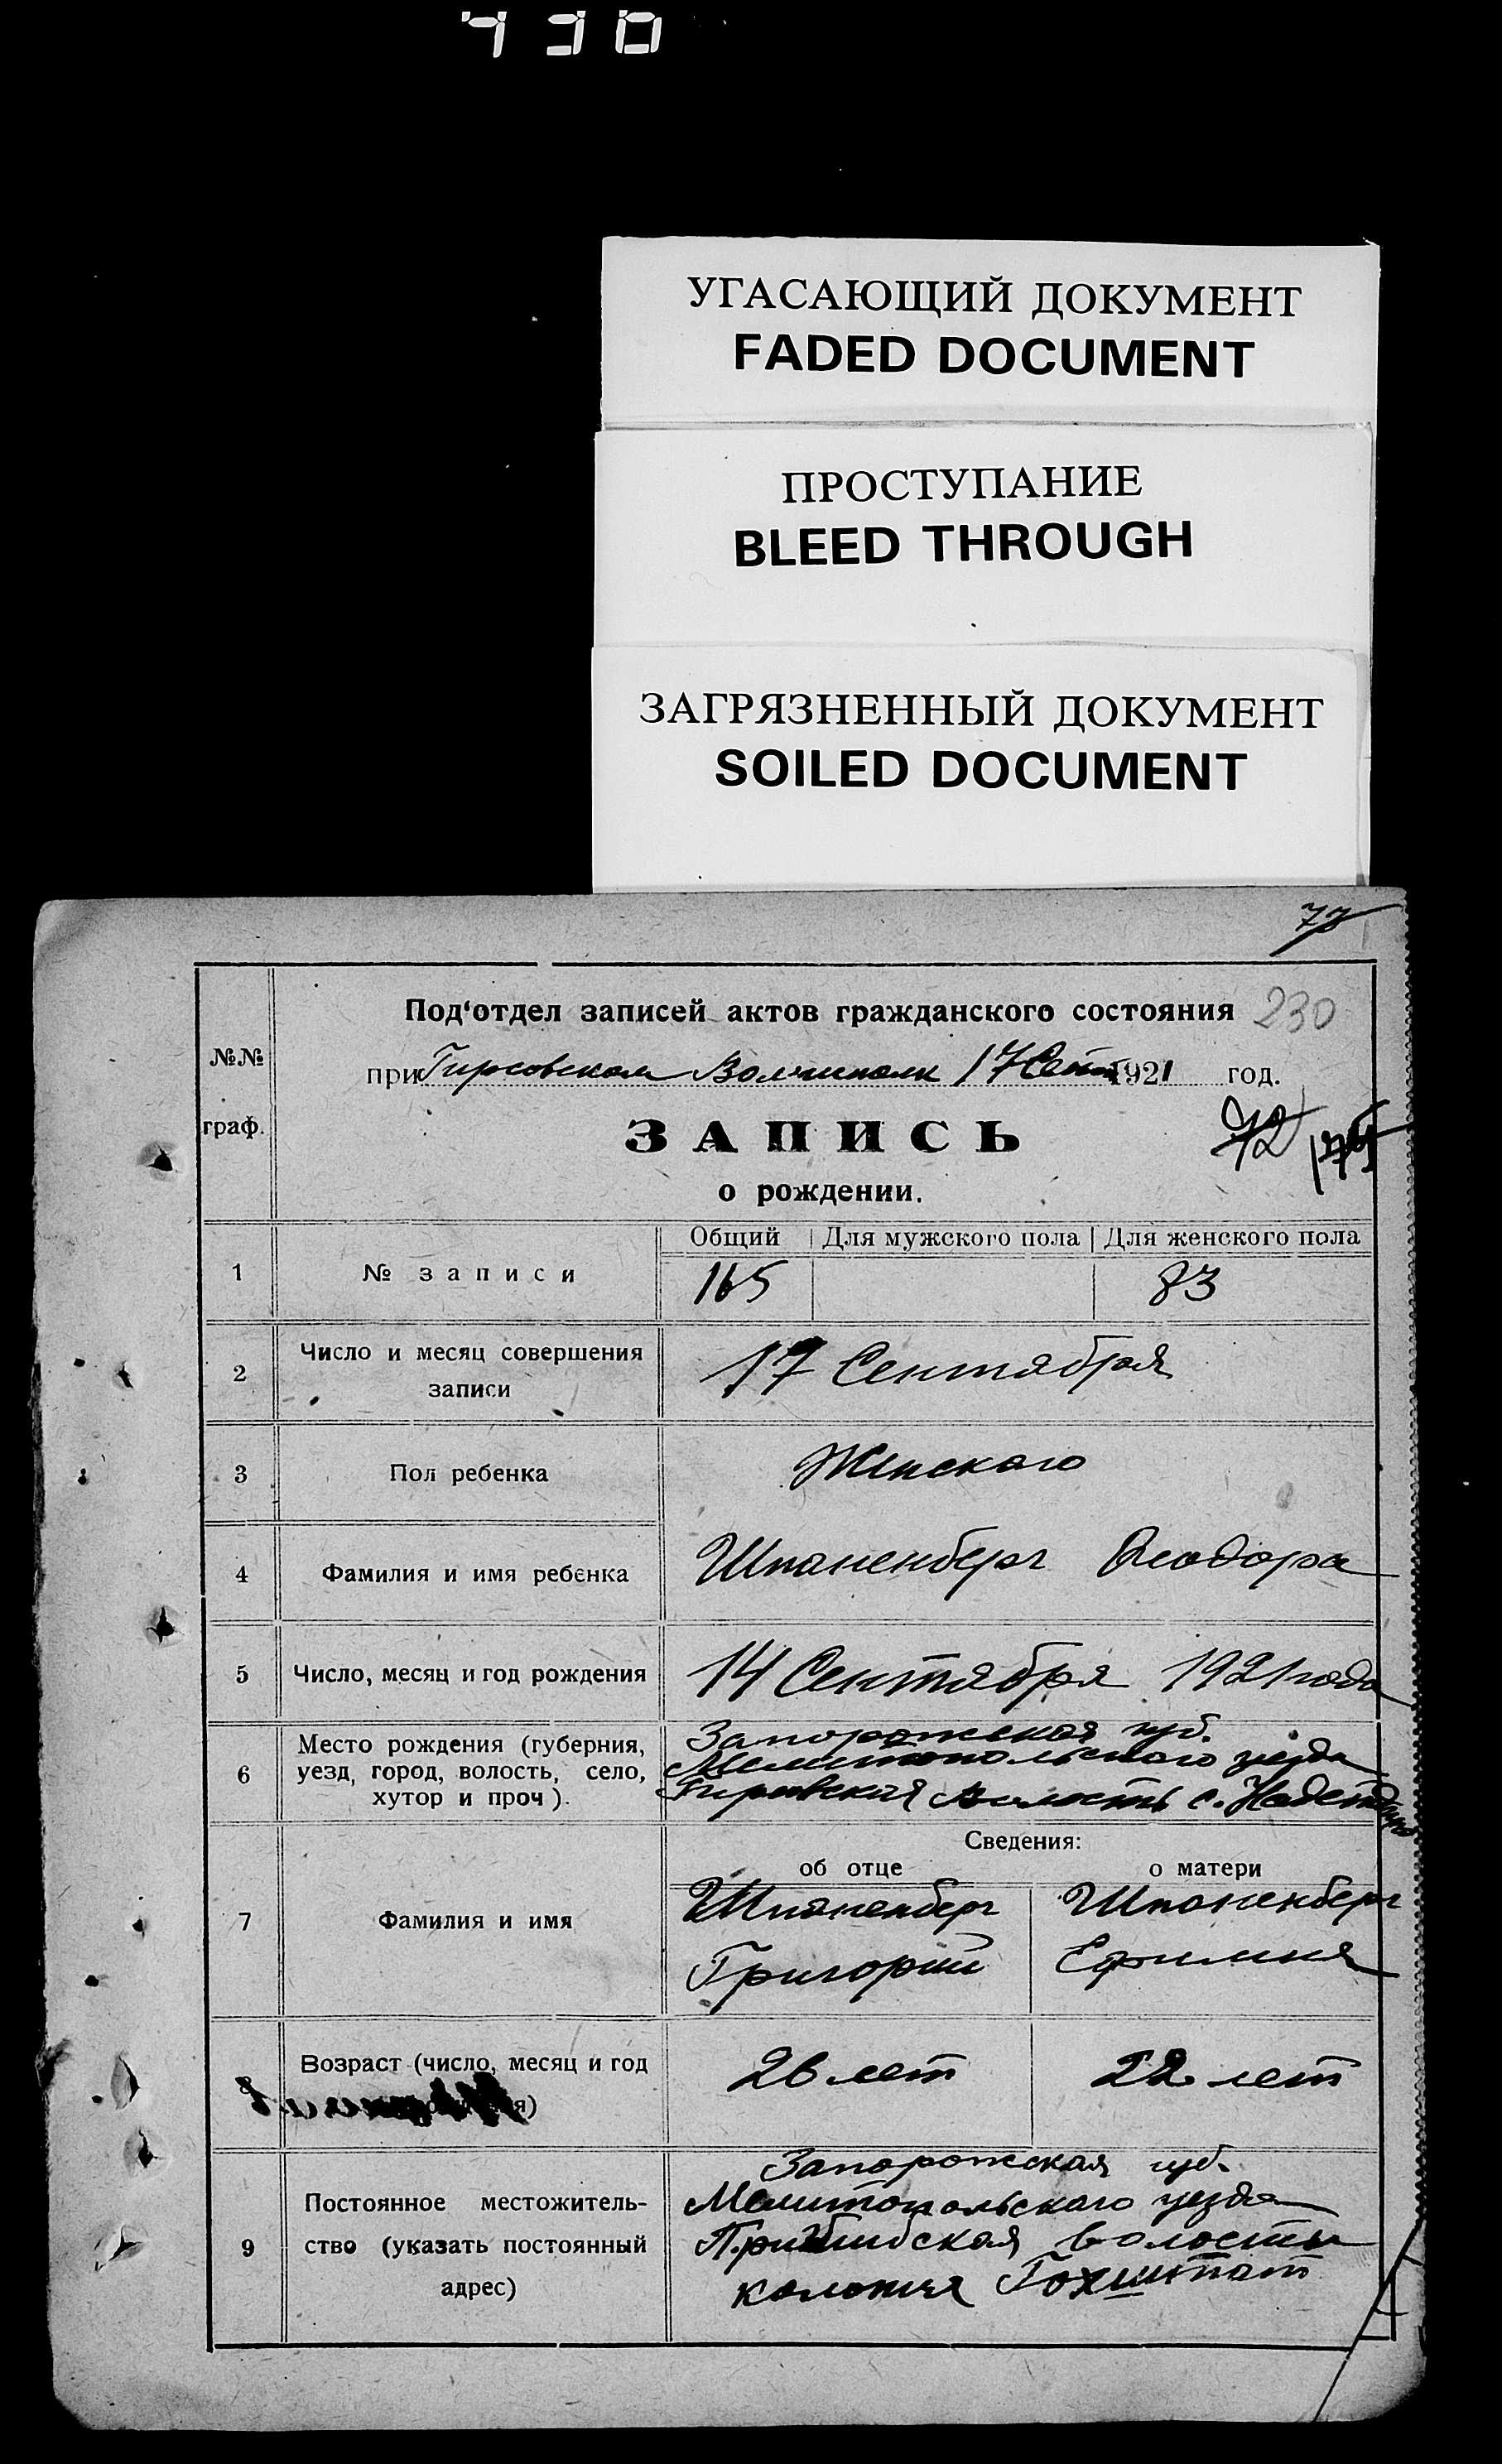 430
УГАСАЮЩИЙ ДОКУМЕНТ
FADED DOCUMENT
ПРОСТУПАНИЕ
BLEED THROUGH
ЗАГРЯЗНЕННЫЙ ДОКУМЕНТ
SOILED DOCUMENT
№№
граф.
Под'отдел записей актов гражданского состояния 230
при Гирсовском Волисполк 17 Сент 1921 год.
ЗАПИСЬ
72
о рождении.
Общий Для мужского пола Для женского пола
1 № записи 165 83
2 Число и месяц совершения
записи
17 Сентября
3 Пол ребенка Женскаго
4 Фамилия и имя ребенка Шпаненберг Феодора
5 Число, месяц и год рождения 14 Сентября 1921 года
6 Место рождения (губерния,
уезд, город, волость, село,
хутор и проч).
Запорожская губ.
Мелитопольскаго уезда
Гирсовская волость с.
Сведения:
об отце о матери
7 Фамилия и имя
Шпаненберг Шпаненберг
Григорий Ефимия
8 Возраст (число, месяц и год
26 лет 22 лет
9 Постоянное местожитель-
ство (указать постоянный
адрес)
Запорожская губ.
Мелитопольскаго уезда
Пришибская волость
колония Гохштат